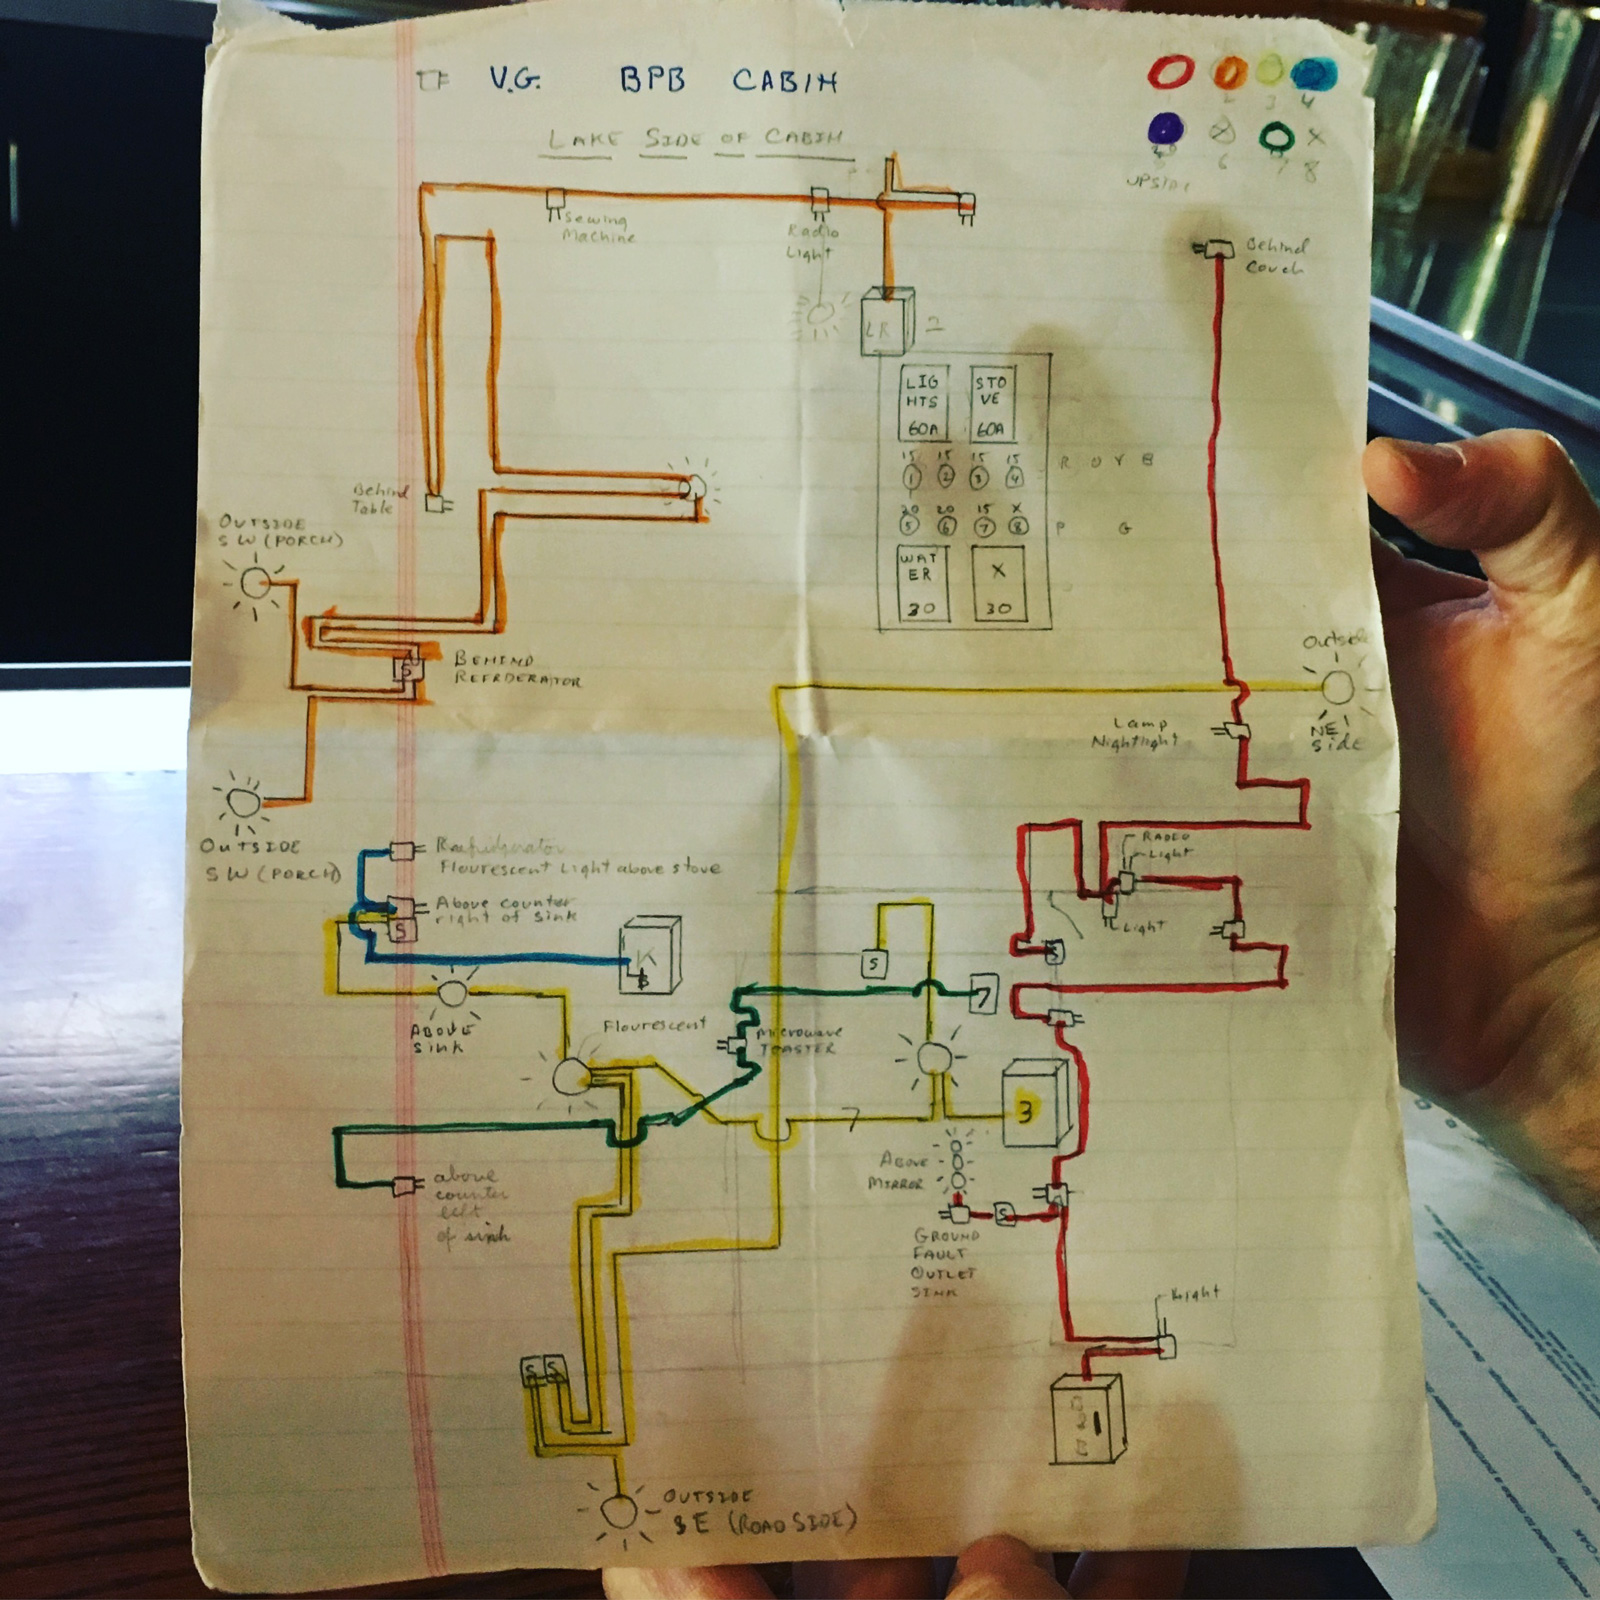 V.G. BPB CABIN
LAKE SIDE OF CABIN
1 2 3 4
6 7 X 8
UPSIDE
Sewing
Machine
Radio
Light
Behind
Couch
LR 2
LIG
HTS
60A
STO
VE
60A
15 15 15 15
1 2 3 4
R O Y B
20 20 15 X
5 6 7 8
P G
WAT
ER
30
X
30
Behind
Table
OUTSIDE
SW (PORCH)
S
BEHIND
REFRDERATOR
Outside
NE
Side
Lamp
Nightlight
OUTSIDE
SW (PORCH)
Refridgerator
Flourescent Light above stove
Above counter
right of sink
S
K
B
RADIO
Light
Light
S
S
7
ABOVE
Sink
Flourescent
Microwave
TOASTER
7
3
ABOVE
MIRROR
S
GROUND
FAULT
OUTLET
SINK
above
counter
left
of sink
Light
S S
1
OUTSIDE
SE (ROAD SIDE)